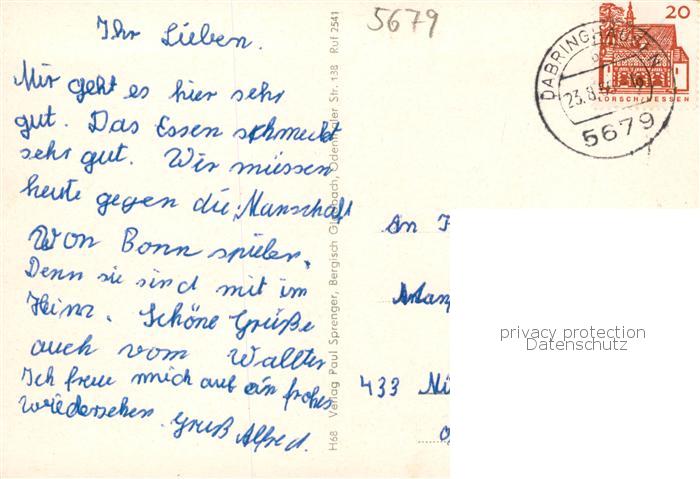 5679
Ihr Lieben.
Mir geht es hier sehr
gut. Das Essen schmeckt
sehr gut. Wir müssen
heute gegen die Manschaft
Von Bonn spielen.
Denn sie sind mit im
Heim. Schöne Grüße
auch vom Wallter
Ich freue mich auf ein frohes
wiedersehen.
Gruß Alfred.
H68 Verlag Paul Sprenger, Bergisch Gladbach, Odenthaler Str. 138 Ruf 2541
20
LORSCH/HESSEN
DABRINGHAUSEN
23.8.
5679
An
433
privacy protection
Datenschutz